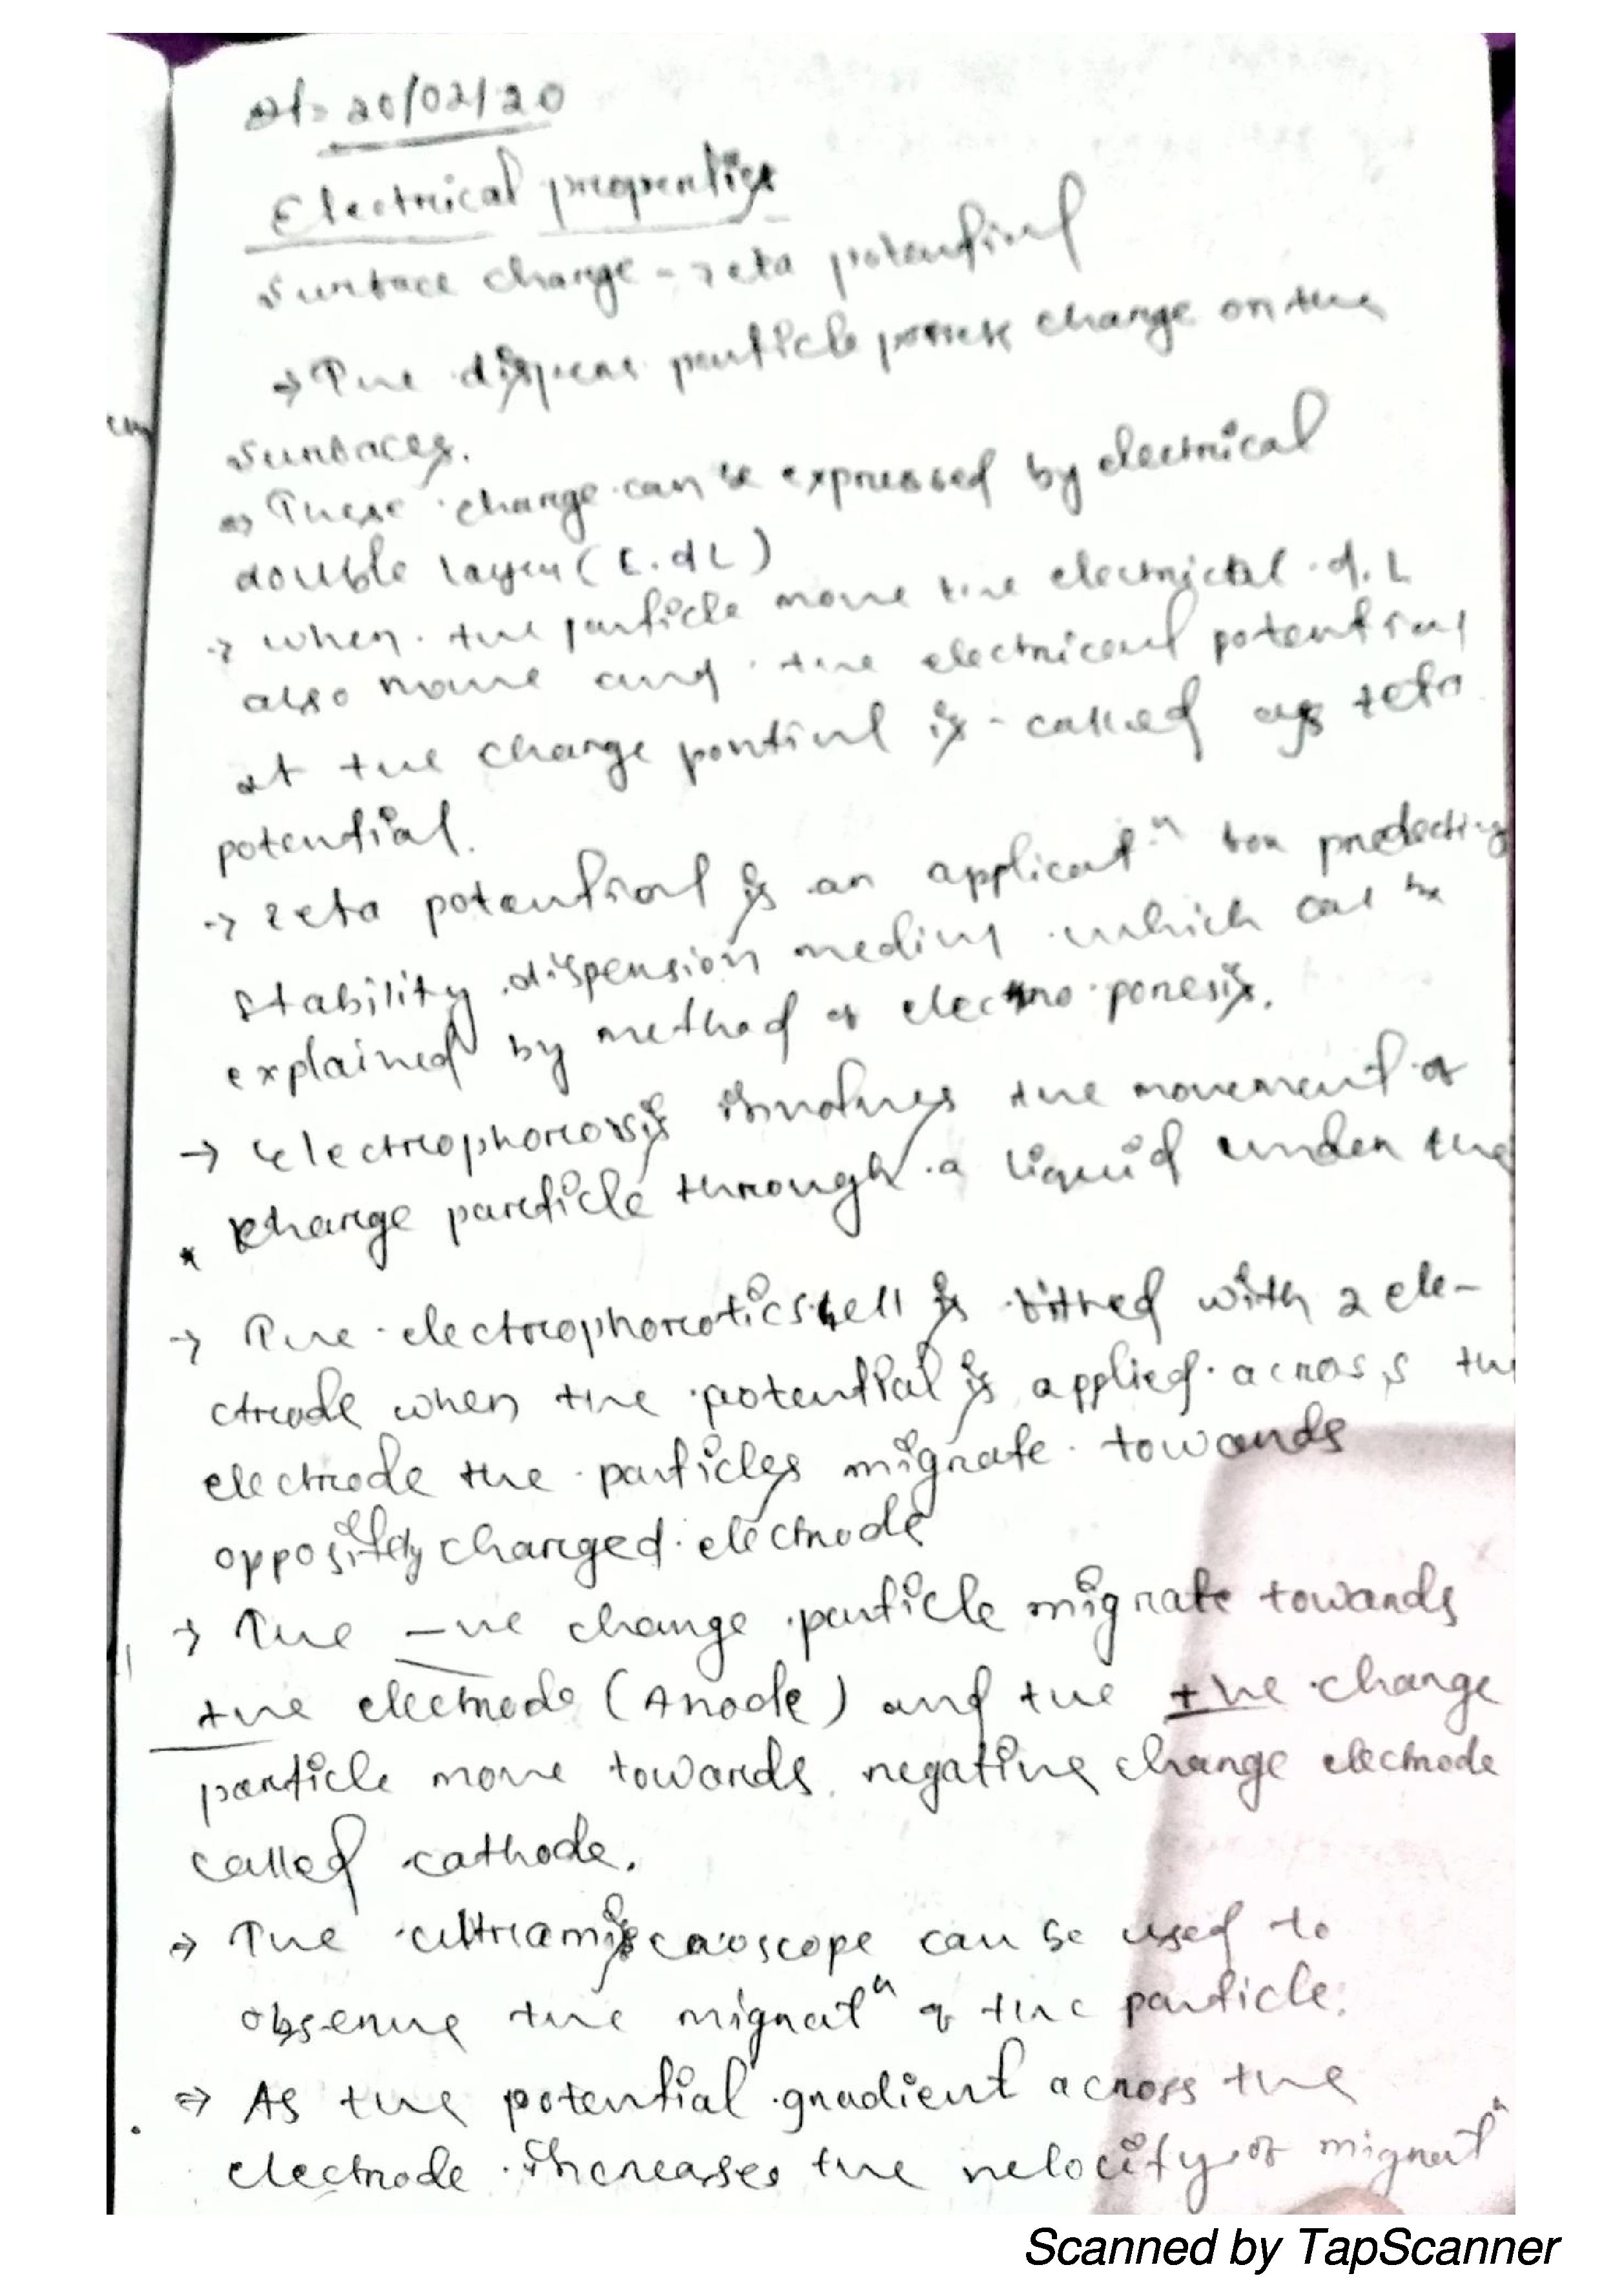 Dt- 20/02/20
Electrical properties
Surface charge - zeta potential
→ The dispers particle posses charge on the
surfaces.
⇒ These charge can be expressed by electrical
double layer (E.dL)
→ when the particle move the electrictal d.L
also move and the electrical potential
at the charge pontinl is called as zeta
potential.
→ zeta potential is an applicatⁿ for predecting
stability dispersion medium which can be
explained by method of electro poresis.
→ electrophoresis involves the movement of
charge particle through a liquid under the
→ The electrophoretics cell is fitted with 2 ele-
ctrode when the potential is applied across the
electrode the particles migrate towards
oppositely charged electrode
→ The -ve charge particle migrate towards
+ve electrode (Anode) and the +ve charge
particle move towards negative charge electrode
called cathode.
⇒ The ultramiscroscope can be used to
observe the migratⁿ of the particle.
⇒ As the potential gradient across the
electrode increases the velocity of migratⁿ
Scanned by TapScanner